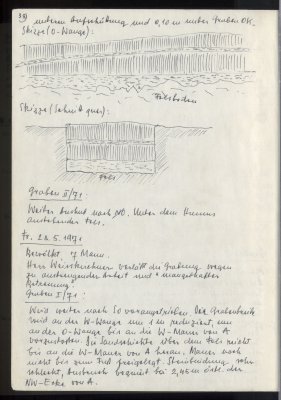 39)
unteren Aufschüttung und 0,10 m unter Graben OK.
Skizze (O-Wange):
Felsboden
Skizze (Schnitt quer):
Fels
Graben II/71
Weiter Aushub nach NO. Unter dem Humus
anstehender Fels.
Fr. 28.5.1971
Bewölkt, 7 Mann.
Herr Weinkirchner verläßt die Grabung wegen
zu anstrengender Arbeit und "mangelhafter
Betreuung".
Graben I/71:
Wird weiter nach SO vorangetrieben. Die Grabenbreite
wird an der W-Wange um 1 m reduziert, um
an der O-Wange bis an die W-Mauer von A
vorzustoßen. Die Sandschichte über dem Fels reicht
bis an die W-Mauer von A heran. Mauer noch
nicht bis zum Fuß freigelegt. Steinbindung sehr
schlecht, Ausbruch beginnt bei 2,45 m östl. der
NW-Ecke von A.